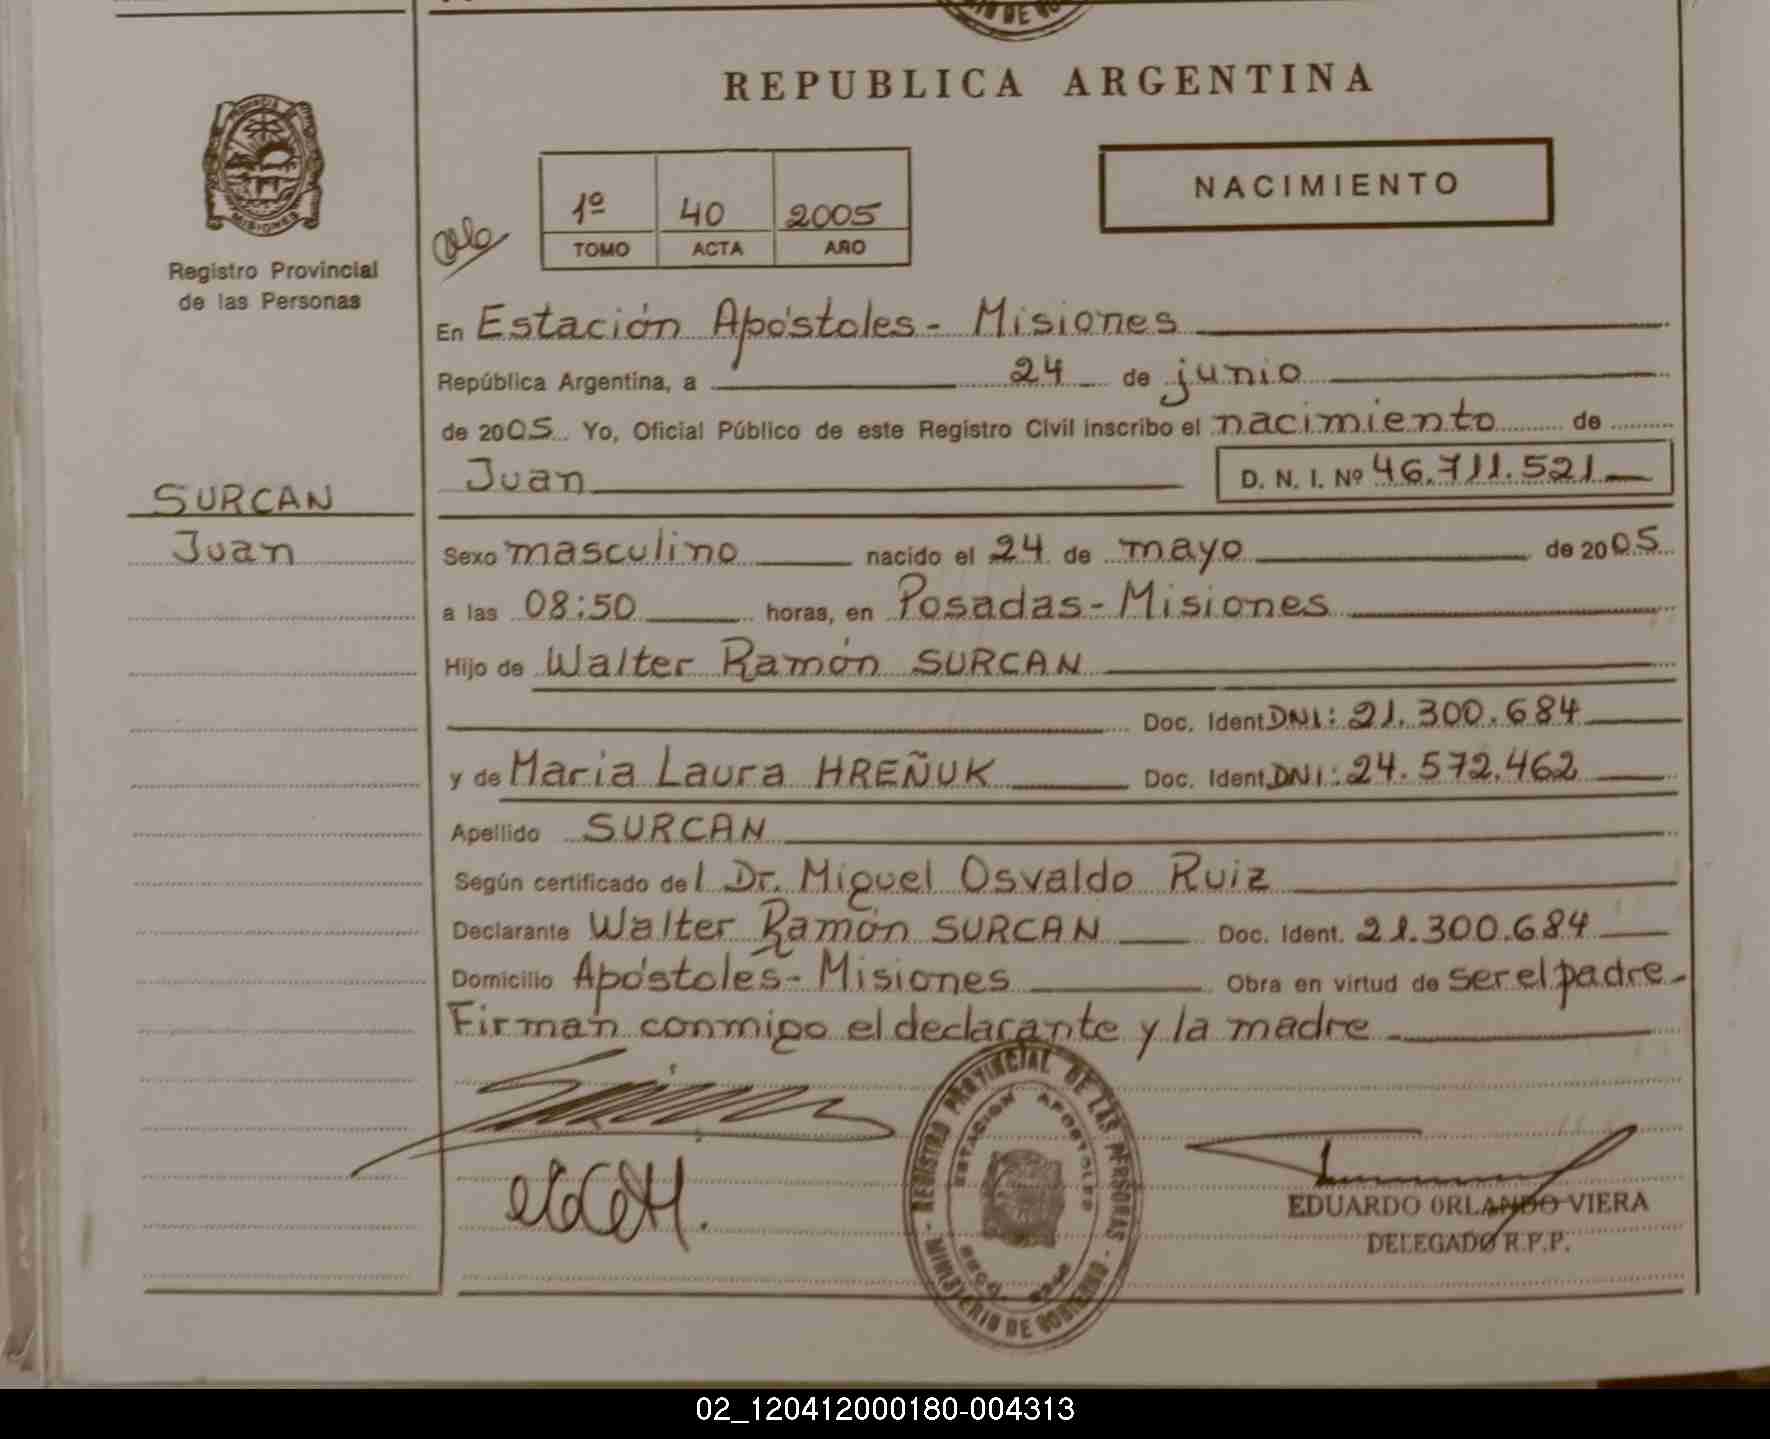 REPUBLICA ARGENTINA
PROVINCIA
MISIONES
Registro Provincial
de las Personas
1º 40 2005
TOMO ACTA AÑO
NACIMIENTO
En Estación Apóstoles - Misiones
República Argentina, a 24 de junio
de 2005 Yo, Oficial Público de este Registro Civil inscribo el nacimiento de
Juan D. N. I. Nº 46.711.521
SURCAN
Juan
Sexo masculino nacido el 24 de mayo de 2005
a las 08:50 horas, en Posadas - Misiones
Hijo de Walter Ramón SURCAN
Doc. Ident DNI: 21.300.684
y de Maria Laura HREÑUK Doc. Ident. DNI: 24.572.462
Apellido SURCAN
Según certificado del Dr. Miguel Osvaldo Ruiz
Declarante Walter Ramón SURCAN Doc. Ident. 21.300.684
Domicilio Apóstoles - Misiones Obra en virtud de ser el padre -
Firman conmigo el declarante y la madre
REGISTRO PROVINCIAL DE LAS PERSONAS
ESTACION APOSTOLES
MINISTERIO DE GOBIERNO
EDUARDO ORLANDO VIERA
DELEGADO R.P.P.
02_120412000180-004313